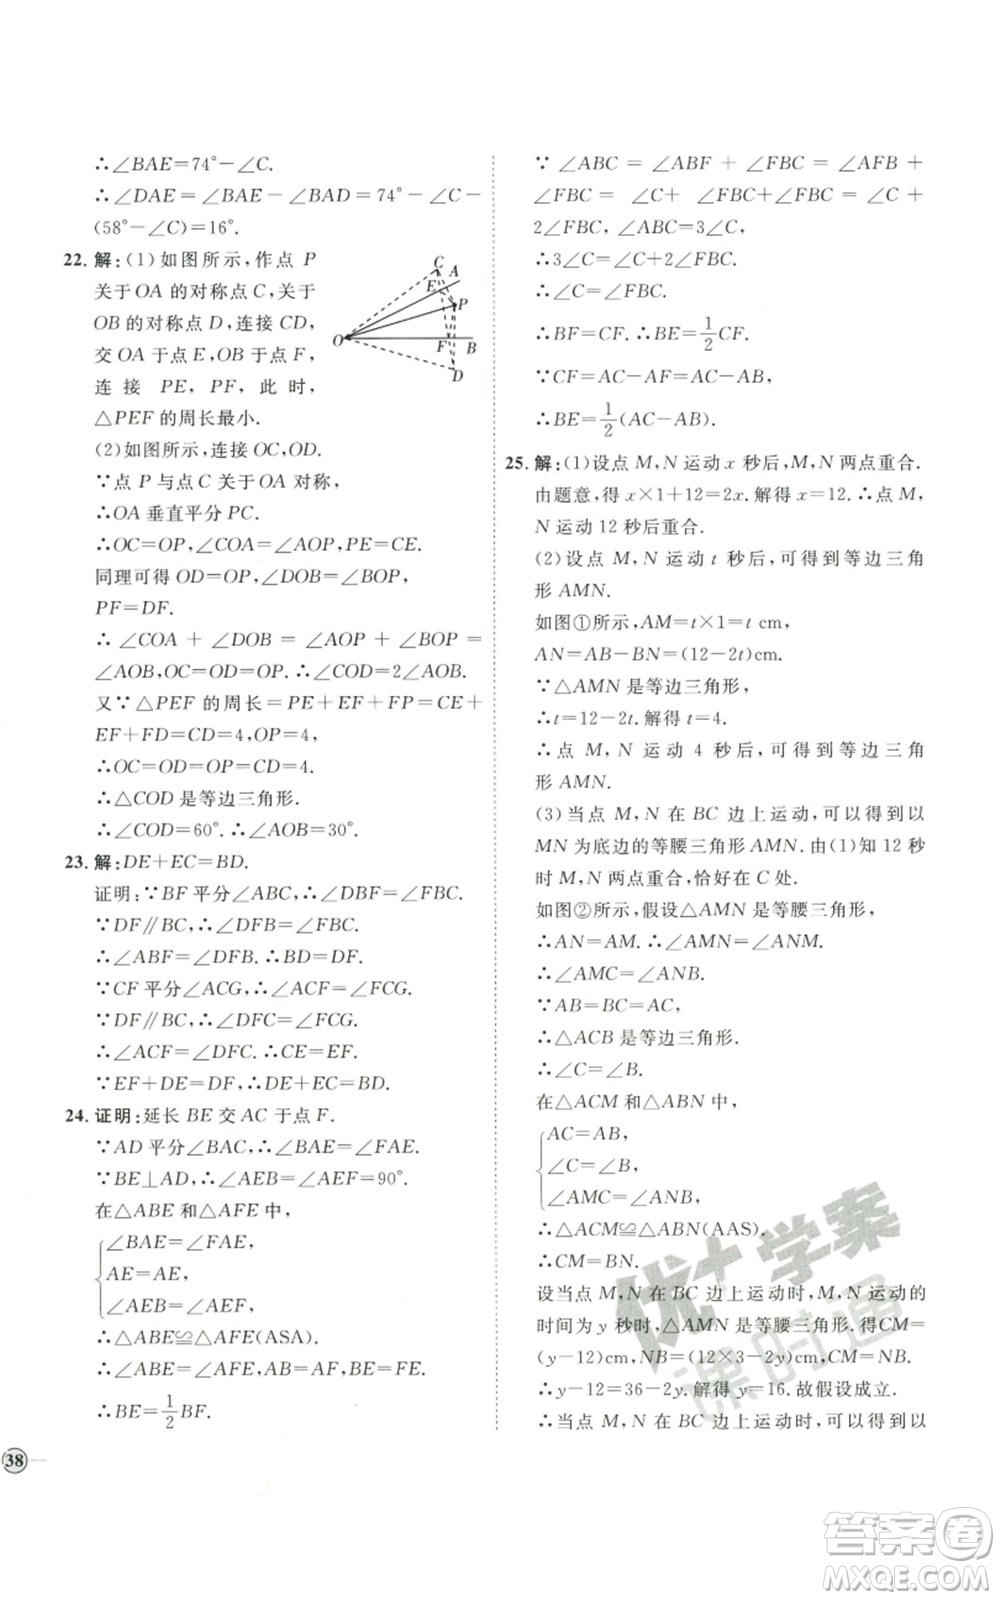 ∴∠BAE=74°-∠C.
∴∠DAE=∠BAE-∠BAD=74°-∠C-
(58°-∠C)=16°.
22. 解:(1)如图所示,作点 P
关于OA的对称点C,关于
OB的对称点D,连接CD,
交OA于点E,OB于点F,
连接 PE, PF, 此时,
△PEF的周长最小.
C
A
E
P
O
F
B
D
(2)如图所示,连接OC,OD.
∵点 P与点C关于OA对称,
∴OA垂直平分PC.
∴OC=OP,∠COA=∠AOP,PE=CE.
同理可得OD=OP,∠DOB=∠BOP,
PF=DF.
∴∠COA+∠DOB=∠AOP+∠BOP=
∠AOB,OC=OD=OP.∴∠COD=2∠AOB.
又∵△PEF的周长=PE+EF+FP=CE+
EF+FD=CD=4,OP=4,
∴OC=OD=OP=CD=4.
∴△COD是等边三角形.
∴∠COD=60°.∴∠AOB=30°.
23. 解:DE+EC=BD.
证明:∵BF平分∠ABC,∴∠ABF=∠FBC.
∵DF∥BC,∴∠DFB=∠FBC.
∴∠ABF=∠DFB.∴BD=DF.
∵CF平分∠ACG,∴∠ACF=∠FCG.
∵DF∥BC,∴∠DFC=∠FCG.
∴∠ACF=∠DFC.∴CE=EF.
∵EF+DE=DF,∴DE+EC=BD.
24. 证明:延长BE交AC于点F.
∵AD平分∠BAC,∴∠BAE=∠FAE.
∵BE⊥AD,∴∠AEB=∠AEF=90°.
在△ABE和△AFE中,
∠BAE=∠FAE,
AE=AE,
∠AEB=∠AEF,
∴△ABE≌△AFE(ASA).
∴∠ABF=∠AFB,AB=AF,BE=FE.
∴BE=1/2BF.
38
∵∠ABC=∠ABF+∠FBC=∠AFB+
∠FBC=∠C+∠FBC+∠FBC=∠C+
2∠FBC,∠ABC=3∠C,
∴3∠C=∠C+2∠FBC.
∴∠C=∠FBC.
∴BF=CF.∴BE=1/2CF.
∵CF=AC-AF=AC-AB,
∴BE=1/2(AC-AB).
25. 解:(1)设点M,N运动x秒后,M,N两点重合.
由题意,得x×1+12=2x.解得x=12.∴点M,
N运动12秒后重合.
(2)设点M,N运动t秒后,可得到等边三角
形AMN.
如图①所示,AM=t×1=t cm,
AN=AB-BN=(12-2t)cm.
∵△AMN是等边三角形,
∴t=12-2t.解得t=4.
∴点M,N运动4秒后,可得到等边三角
形AMN.
(3)当点M,N在BC边上运动,可以得到以
MN为底边的等腰三角形AMN.由(1)知12秒
时M,N两点重合,恰好在C处.
如图②所示,假设△AMN是等腰三角形,
∴AN=AM.∴∠AMN=∠ANM.
∴∠AMC=∠ANB.
∵AB=BC=AC,
∴△ACB是等边三角形.
∴∠C=∠B.
在△ACM和△ABN中,
AC=AB,
∠C=∠B,
∠AMC=∠ANB,
∴△ACM≌△ABN(AAS).
∴CM=BN.
设当点M,N在BC边上运动时,M,N运动的
时间为y秒时,△AMN是等腰三角形.得CM=
(y-12)cm,NB=(12×3-2y)cm,CM=NB.
∴y-12=36-2y.解得y=16.故假设成立.
∴当点M,N在BC边上运动时,可以得到以
优+学案
课时通
答案卷
MXQE.COM